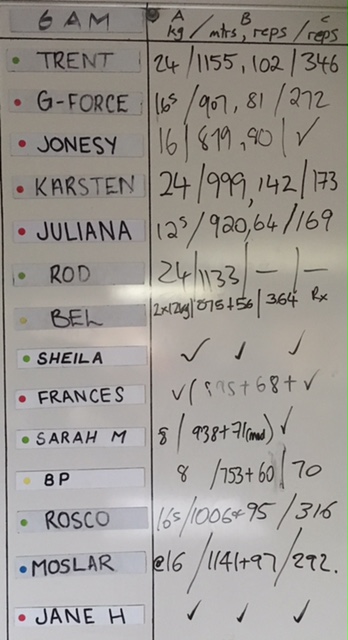 6 AM A kg / B mtrs, reps / C reps
TRENT 24 / 1155, 102 / 346
G-FORCE 16s / 907, 81 / 272
JONESY 16 / 819, 90 / ✓
KARSTEN 24 / 999, 142 / 173
JULIANA 12s / 920, 64 / 169
ROD 24 / 1133 / — / —
BEL 2x12kg / 875+56 / 364 Rx
SHEILA ✓ ✓ ✓
FRANCES ✓ / 895+68+ ✓
SARAH M 8 / 938+71(mod) ✓
BP 8 / 753+60 / 70
ROSCO 16s / 1006+95 / 316
MOSLAR @16 / 1141+97 / 292.
JANE H ✓ ✓ ✓